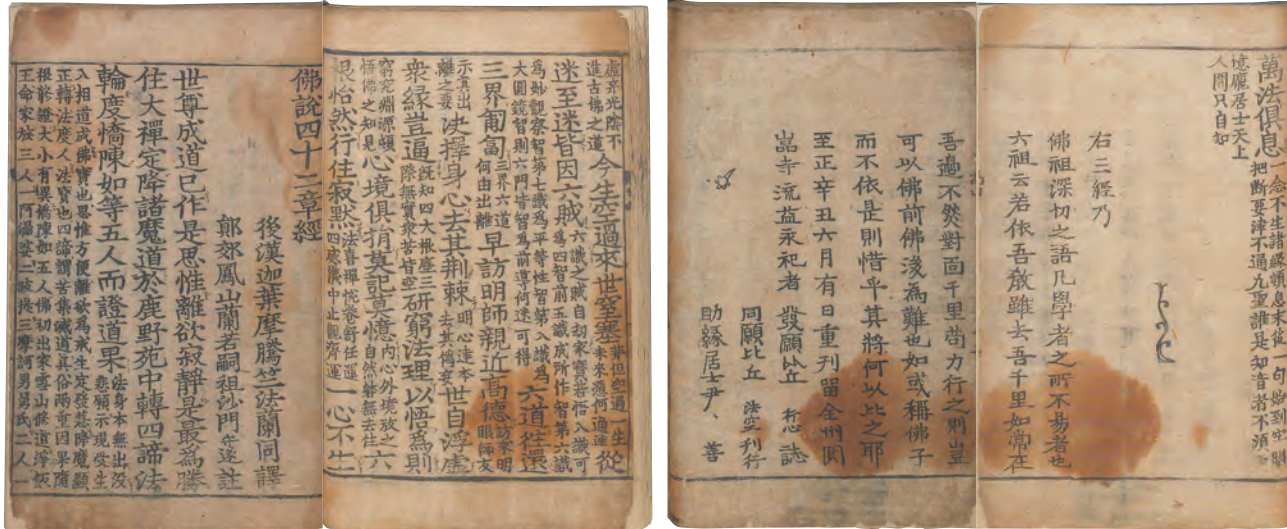 虛弃光陰不造古佛之道今生空過來世窒塞事但空過一生未來憑何通達從
迷至迷皆因六賊六識之賊自劫家寶若悟八識可為四智前五識成所作智第六識
為妙觀察智第七識為平等性智第八識為大圓鏡智則六門皆智為前導何迷可得六道徃還
三界匍匐三界六道何由出離早訪明師親近高德訪求明眼師友
示真出離之要决擇身心去其荆棘明心達本去其情妄世自浮虛
衆緣豈逼既知四大根塵三際無實衆苦皆空研窮法理以悟為則
窮究淵源頓悟佛之知見心境俱捐莫記莫憶內心外境放之自然體無去住六
根怡然行住寂默法喜禪恱卷舒任運四威儀中止觀齊運一心不生
佛說四十二章經
後漢迦葉摩騰竺法蘭同譯
鄭郊鳳山蘭若嗣祖沙門守遂註
世尊成道已作是思惟離欲寂靜是最為勝
住大禪定降諸魔道於鹿野苑中轉四諦法
輪度憍陳如等五人而證道果法身本無出沒悲願示現受生
八相道成佛寶也思惟方便離欲為戒生定發慧降魔顯
正轉法度人法寶也四諦謂苦集滅道真俗兩重因果隨
根修證大小有異憍陳如五人佛初出家雪山修道淨飯
王命家族三人一阿濕婆二跋提三摩訶男舅氏二人一
萬法俱息一念不生諸緣頓息末後一句始到牢關把斷要津不通凡聖誰是知音者不須
憶龐居士天上人間只自知
右三經乃
佛祖深切之語凡學者之所不易者也
六祖云若依吾教雖去吾千里如常在
吾邊不然對面千里苟力行之則豈
可以佛前佛後為難也如或稱佛子
而不依是則惜乎其將何以比之耶
至正辛丑六月有日重刊留全州圓
嵓寺流益永祀者 發願比丘 行心誌
同願比丘 法空 利行
助緣居士尹、善